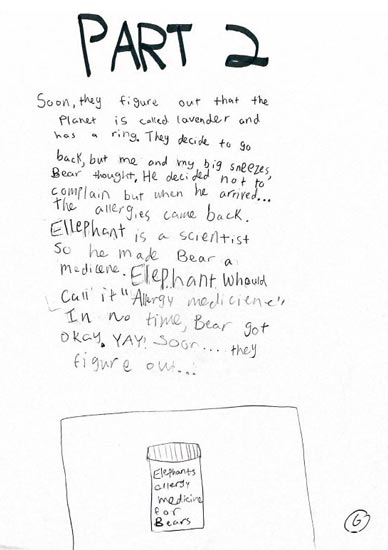 PART 2
Soon, they figure out that the
Planet is called lavender and
has a ring. They decide to go
back, but me and my big sneezes,
Bear thought. He decided not to
complain but when he arrived...
the allergies came back.
Ellephant is a scientist
So he made Bear a
medicene. Elephant whould
Call it "Allergy medicience"
In no time, Bear got
okay. YAY! Soon... they
figure out...
Elephants
allergy
medicine
for
Bears
6